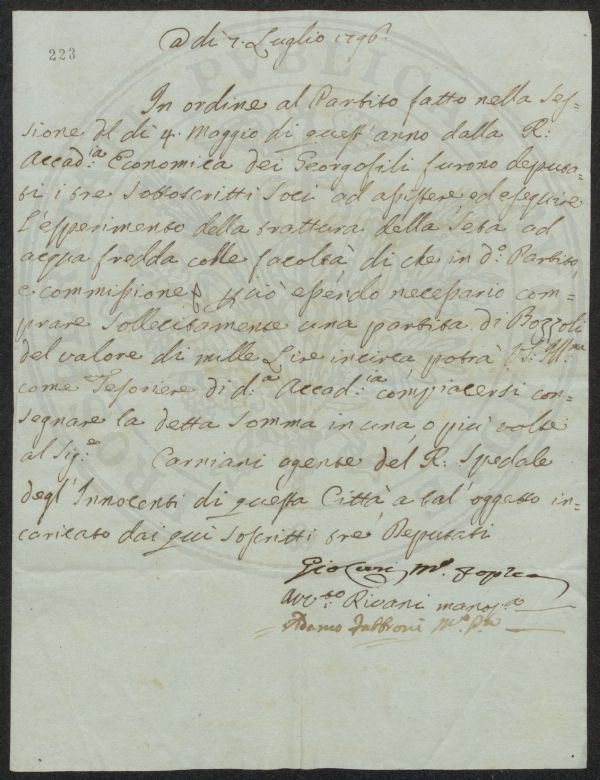 223
A di 7. Luglio 1796.
In ordine al Partito fatto nella Ses=
sione del di 4. Maggio di quest'anno dalla R:
Accad:ia Economica dei Georgofili furono deputa=
ti i tre Sottoscritti Soci ad assistere ed eseguire
l'esperimento della trattura della Seta ad
acqua fredda colle facoltà di che in d:o Partito
e commissione, e perciò essendo necessario com=
prare sollecitamente una partita di Bozzoli
del valore di mille Lire incirca potrà V.S. Ill:ma
come Tesoriere di d:a Accad:ia compiacersi con=
segnare la detta somma in una o più volte
al Sig:e Carniani agente del R: Spedale
degl'Innocenti di questa Città a tal'oggetto in=
caricato dai qui soscritti tre Deputati
Avv:to Rivani mano p:a
Adamo Fabbroni M:o P:a